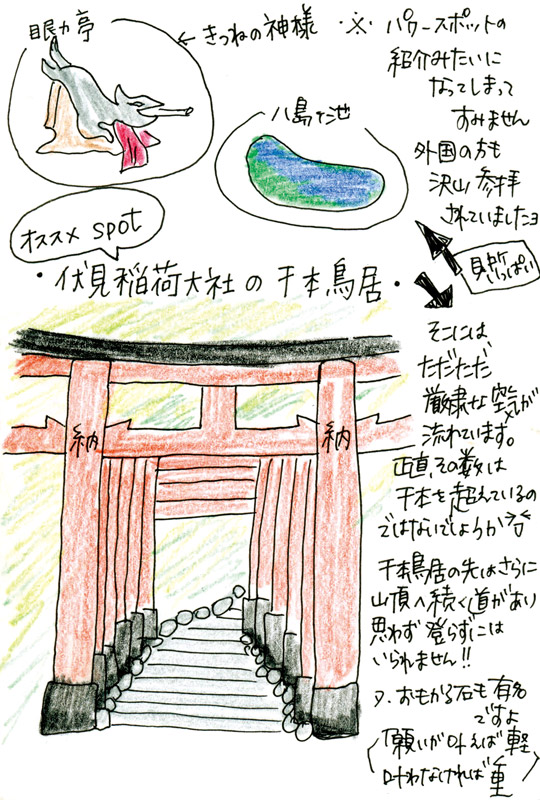 眼力亭
←きつねの神様
・※・パワースポットの
紹介みたいに
なってしまって
すみません
外国の方も
沢山参拝
されていましたヨ
八島ヶ池
オススメ spot
見所いっぱい
・伏見稲荷大社の千本鳥居・
納
納
そこには
ただただ
厳粛な空気が
流れています。
正直、その数は
千本を超えているの
ではないでしょうか
千本鳥居の先はさらに
山頂へ続く道があり
思わず登らずには
いられません!!
おもかる石も有名
ですよ
(願いが叶えば軽
叶わなければ重)